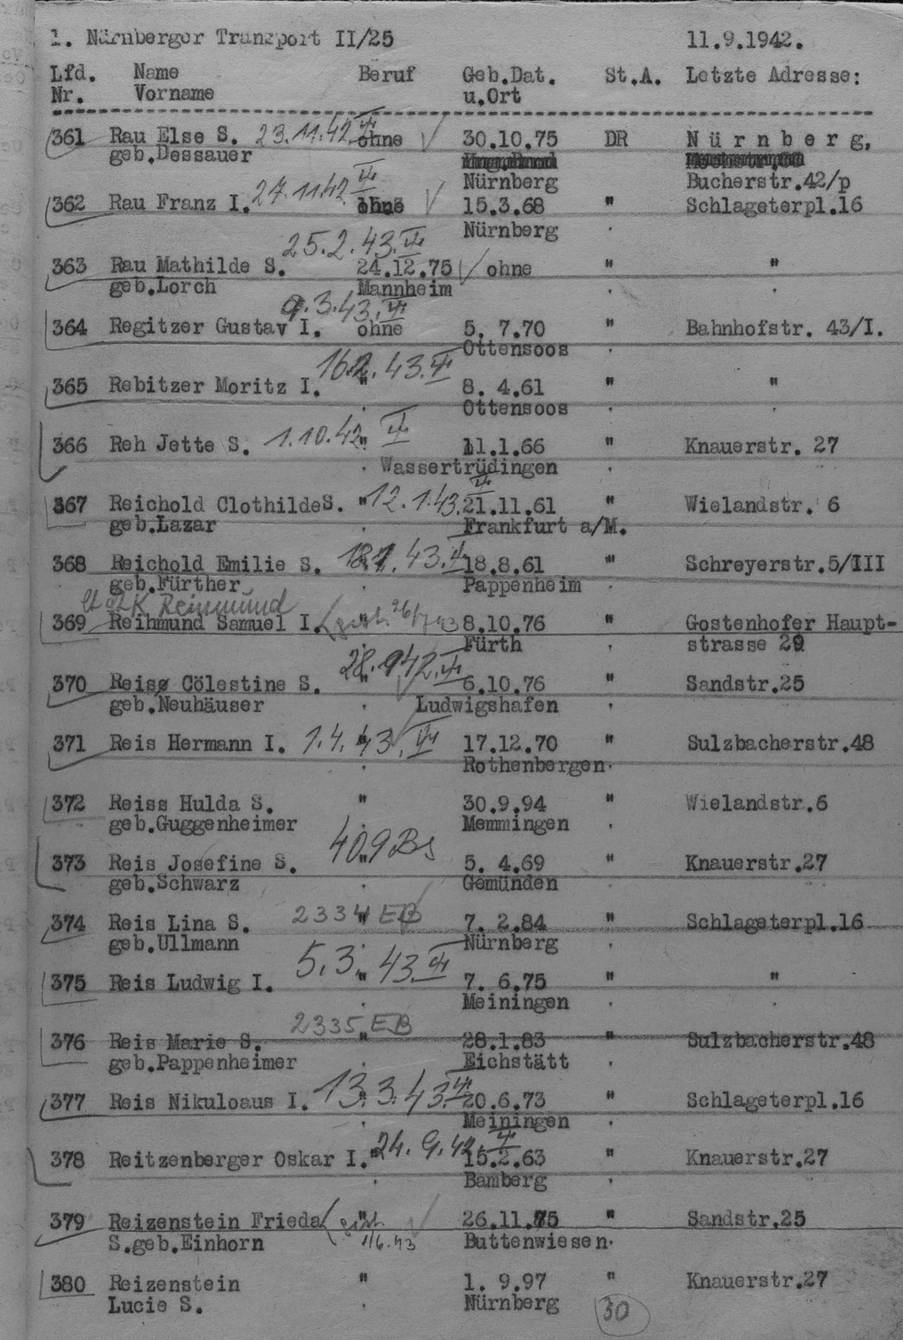 1. Nürnberger Transport II/25 11.9.1942.
Lfd. Name Beruf Geb.Dat. St.A. Letzte Adresse:
Nr. Vorname u.Ort
361 Rau Else S. 23.11.42 ohne 30.10.75 DR Nürnberg,
geb.Dessauer
Nürnberg Bucherstr.42/p
27.11.42
362 Rau Franz I. ohne 15.3.68 " Schlageterpl.16
Nürnberg
25.2.43.
363 Rau Mathilde S. 24.12.75 ohne " "
geb.Lorch Mannheim
9.3.43.
364 Regitzer Gustav I. ohne 5. 7.70 " Bahnhofstr. 43/I.
Ottensoos
16.2.43.
365 Rebitzer Moritz I. " 8. 4.61 " "
Ottensoos
366 Reh Jette S. 1.10.42 " 11.1.66 " Knauerstr. 27
Wassertrüdingen
367 Reichold Clothilde S. " 12.1.43. 21.11.61 " Wielandstr. 6
geb.Lazar Frankfurt a/M.
368 Reichold Emilie S. 43. 18.8.61 " Schreyerstr.5/III
geb.Fürther Pappenheim
Reinmund
369 Reihmund Samuel I. " 8.10.76 " Gostenhofer Haupt-
Fürth strasse 29
28.9.42.
370 Reis Cölestine S. " 6.10.76 " Sandstr.25
geb.Neuhäuser Ludwigshafen
371 Reis Hermann I. 1.4.43. " 17.12.70 " Sulzbacherstr.48
Rothenbergen
372 Reiss Hulda S. " 30.9.94 " Wielandstr.6
geb.Guggenheimer Memmingen
409 Bs
373 Reis Josefine S. " 5. 4.69 " Knauerstr.27
geb.Schwarz Gemünden
374 Reis Lina S. 2334 EB " 7. 2.84 " Schlageterpl.16
geb.Ullmann Nürnberg
375 Reis Ludwig I. 5.3.43. " 7. 6.75 " "
Meiningen
2335 EB
376 Reis Marie S. " 28.1.83 " Sulzbacherstr.48
geb.Pappenheimer Eichstätt
377 Reis Nikuloaus I. 13.3.43. " 20.6.73 " Schlageterpl.16
Meiningen
378 Reitzenberger Oskar I. " 24.9.42. 15.2.63 " Knauerstr.27
Bamberg
379 Reizenstein Frieda " 26.11.75 " Sandstr.25
S.geb.Einhorn 1/6.43 Buttenwiesen
380 Reizenstein " 1. 9.97 " Knauerstr.27
Lucie S. Nürnberg 30